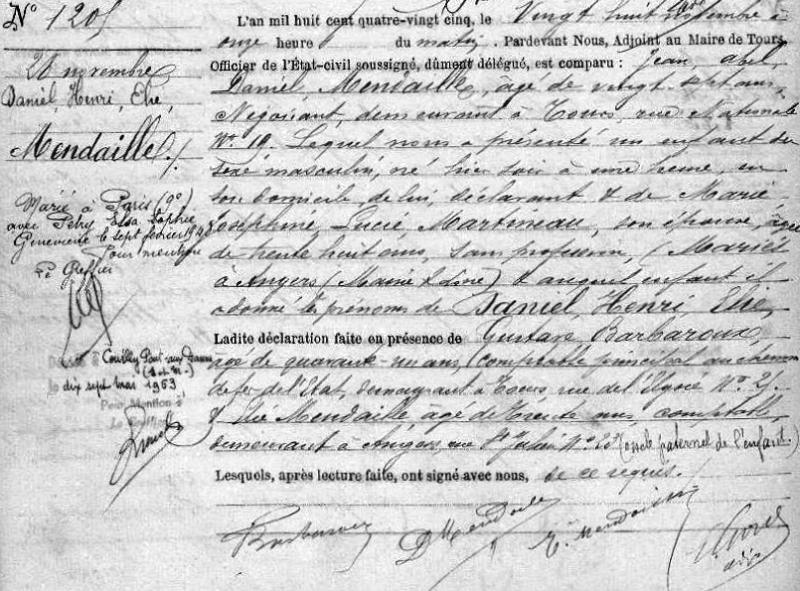 N° 1205
26 novembre
Daniel, Henri, Elie,
Mendaille
Marié à Paris (9e)
avec Petry Elsa Sophie
Geneviève le sept février 194
Pour mention
Le Greffier
Couilly Pont-aux-Dames
(S. et M.)
dix sept mai 1963
Pour Mention
Le Greffier
L'an mil huit cent quatre-vingt cinq, le Vingt huit novembre à
onze heure du matin. Pardevant Nous, Adjoint au Maire de Tours,
Officier de l'État-civil soussigné, dûment délégué, est comparu : Jean Abel
Daniel, Mendaille, âgé de vingt sept ans,
Négociant, demeurant à Tours, rue Nationale
N° 19. Lequel nous a présenté un enfant du
sexe masculin, né hier soir à une heure, en
son domicile, de lui, déclarant & de Marie
Joséphine, Lucie, Martineau, son épouse, âgée
de trente huit ans, sans profession, (Mariés
à Angers (Maine & Loire) & auquel enfant il
a donné les prénoms de Daniel, Henri, Elie.
Ladite déclaration faite en présence de Gustave, Barbaroux,
âgé de quarante-un ans, comptable principal au chemin
de fer de l'Etat, demeurant à Tours, rue de l'Elysée N° 2
& Elie Mendaille âgé de trente ans, comptable,
demeurant à Angers, rue St Julien N° (oncle paternel de l'enfant.)
Lesquels, après lecture faite, ont signé avec nous, de ce requis.
Barbaroux D Mendaille E. Mendaille